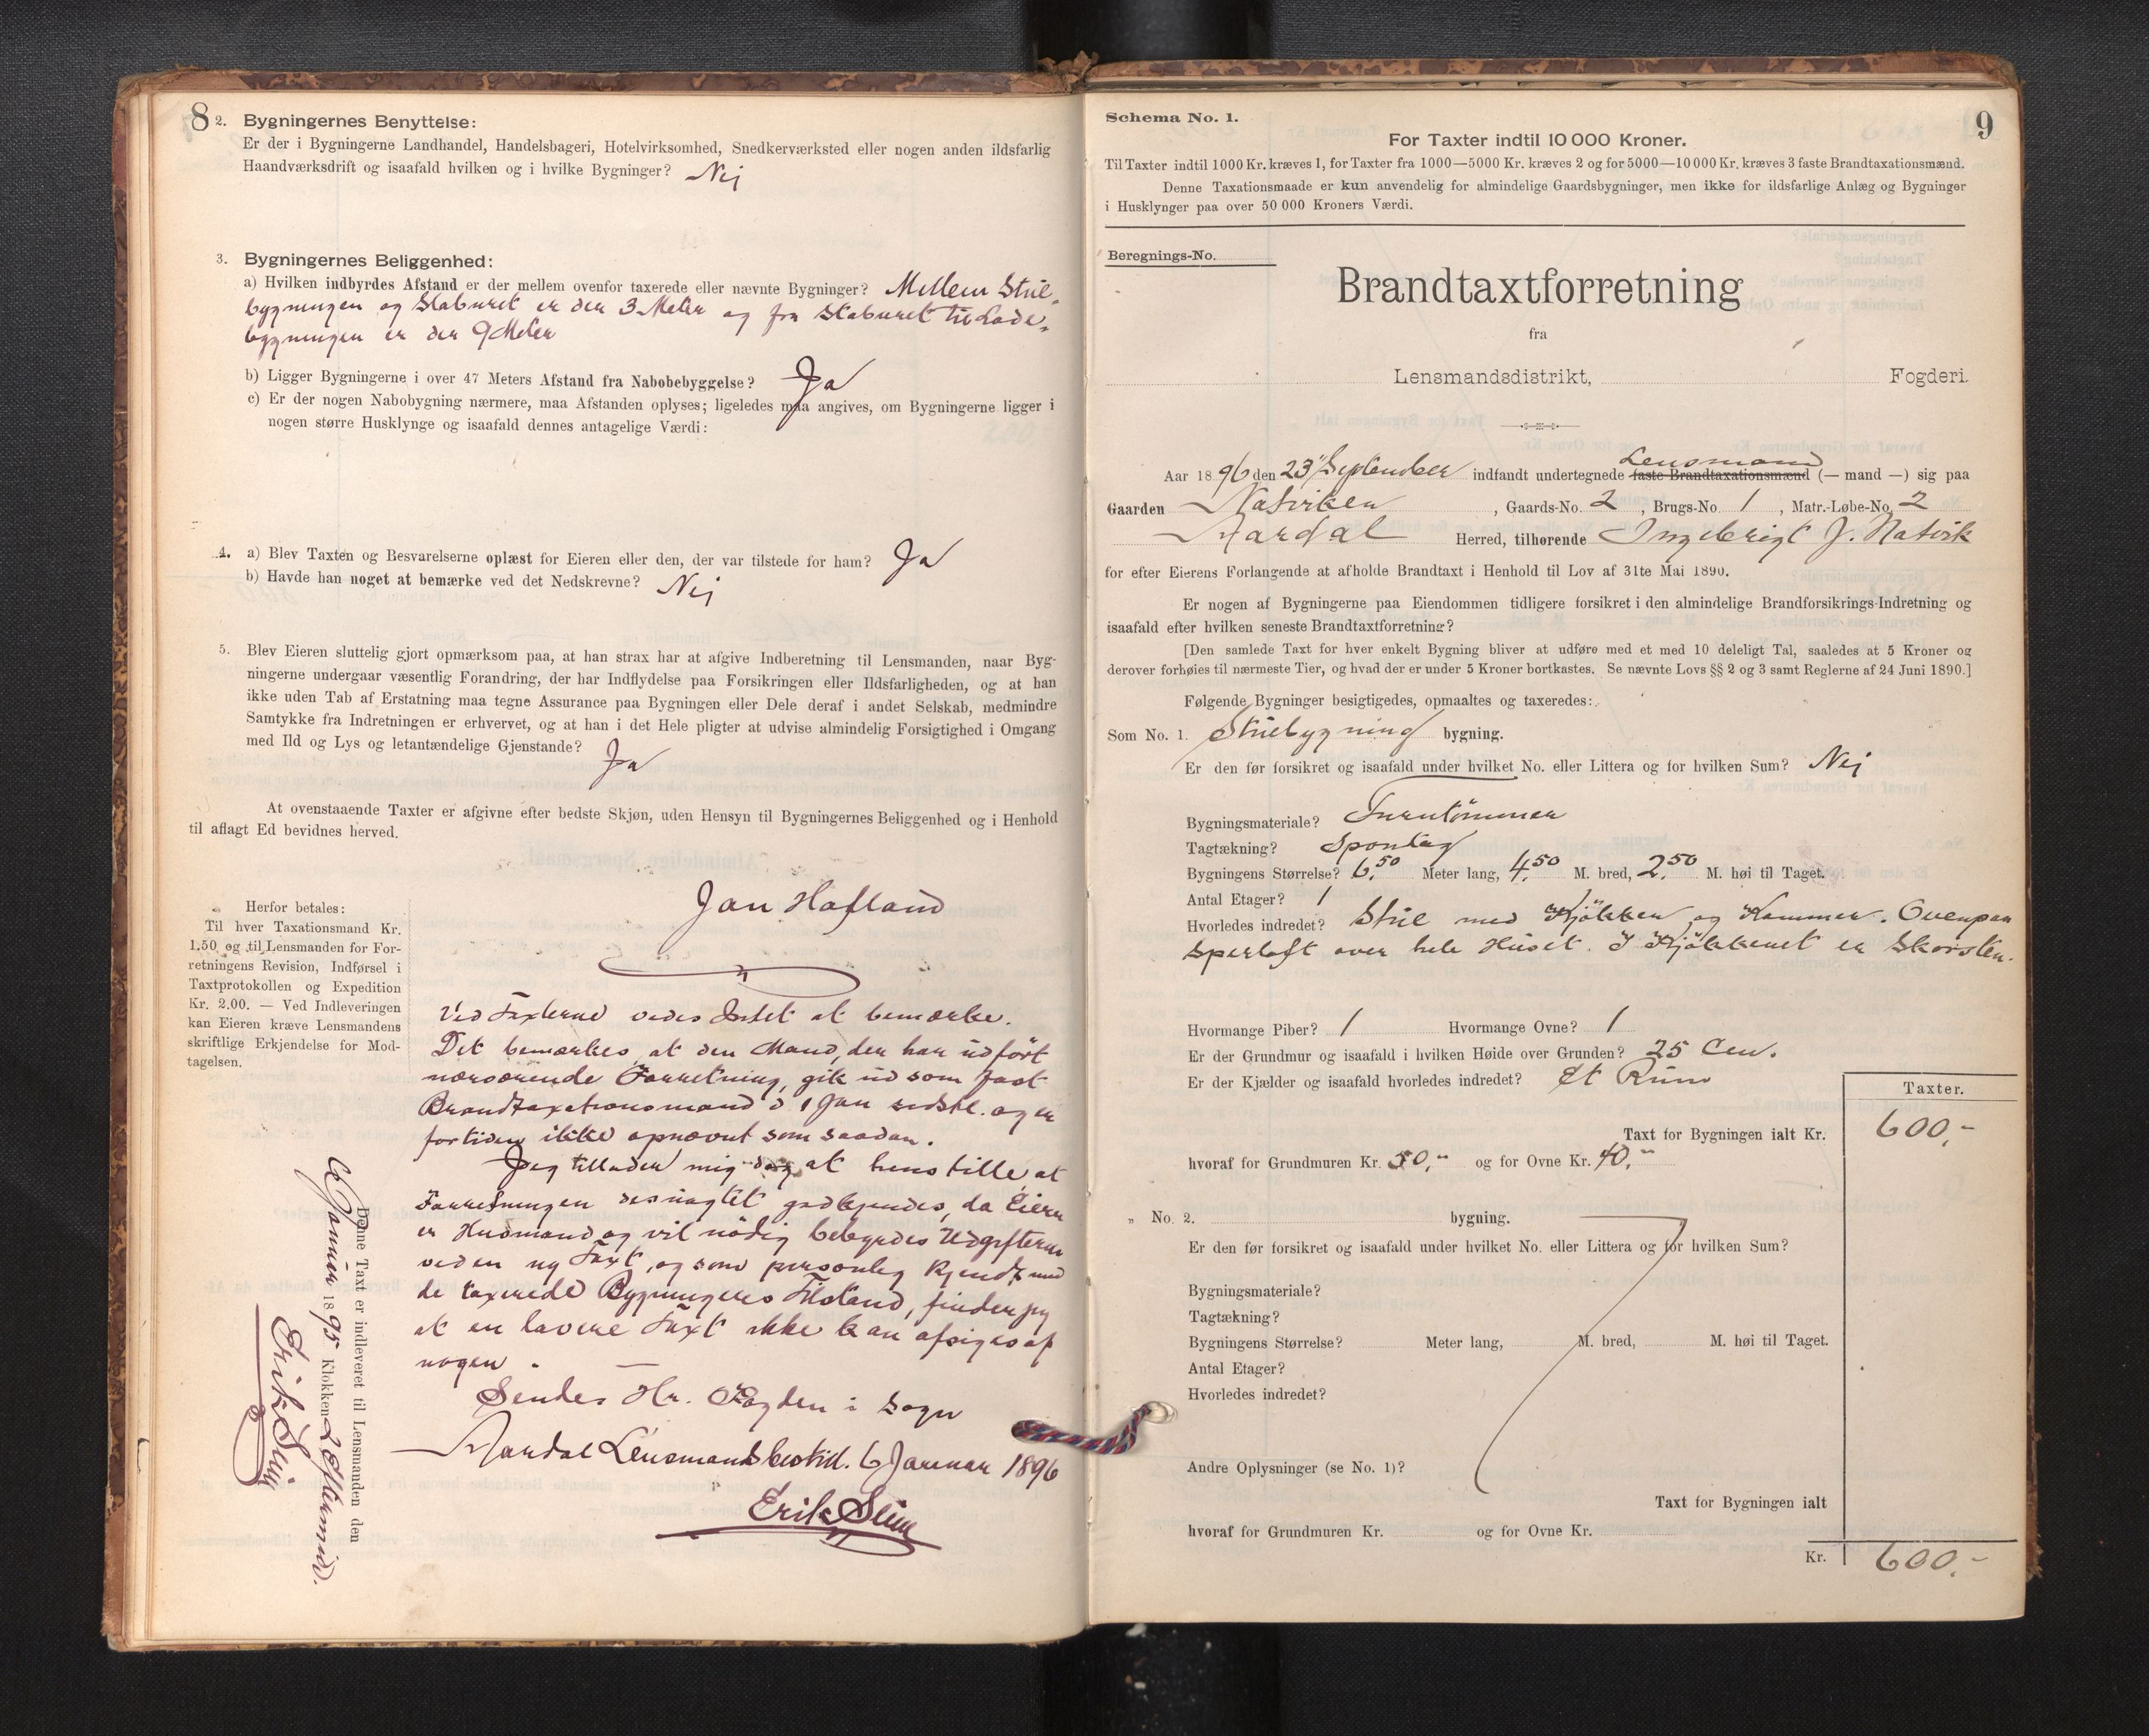 8
2. Bygningernes Benyttelse:
Er der i Bygningerne Landhandel, Handelsbageri, Hotelvirksomhed, Snedkerværksted eller nogen anden ildsfarlig
Haandværksdrift og isaafald hvilken og i hvilke Bygninger? Nei
3. Bygningernes Beliggenhed:
a) Hvilken indbyrdes Afstand er der mellem ovenfor taxerede eller nævnte Bygninger? Mellem Stue-
bygningen og Staburet er der 3 Meter og fra Staburet til Lade-
bygningen er der 9 Meter
b) Ligger Bygningerne i over 47 Meters Afstand fra Nabobebyggelse? Ja
c) Er der nogen Nabobygning nærmere, maa Afstanden oplyses; ligeledes maa angives, om Bygningerne ligger i
nogen større Husklynge og isaafald dennes antagelige Værdi:
4. a) Blev Taxten og Besvarelserne oplæst for Eieren eller den, der var tilstede for ham? Ja
b) Havde han noget at bemærke ved det Nedskrevne? Nei
5. Blev Eieren sluttelig gjort opmærksom paa, at han strax har at afgive Indberetning til Lensmanden, naar Byg-
ningerne undergaar væsentlig Forandring, der har Indflydelse paa Forsikringen eller Ildsfarligheden, og at han
ikke uden Tab af Erstatning maa tegne Assurance paa Bygningen eller Dele deraf i andet Selskab, medmindre
Samtykke fra Indretningen er erhvervet, og at han i det Hele pligter at udvise almindelig Forsigtighed i Omgang
med Ild og Lys og letantændelige Gjenstande? Ja
At ovenstaaende Taxter er afgivne efter bedste Skjøn, uden Hensyn til Bygningernes Beliggenhed og i Henhold
til aflagt Ed bevidnes herved.
Jan Hafland
Herfor betales:
Til hver Taxationsmand Kr.
1.50 og til Lensmanden for For-
retningens Revision, Indførsel i
Taxtprotokollen og Expedition
Kr. 2.00. — Ved Indleveringen
kan Eieren kræve Lensmandens
skriftlige Erkjendelse for Mod-
tagelsen.
Ved Taxterne vides Intet at bemærke.
Det bemærkes, at den Mand, der har udført
nærværende Forretning, gik ud som fast
Brandtaxationsmand d 1 Jan sidstl. og er
fortiden ikke opnævnt som saadan.
Jeg tillader mig at henstille at
Forretningen desuagtet godkjendes, da Eieren
er Husmand og vil nødig bebyrdes Udgifterne
ved en ny Taxt, og som personlig kjendt med
de taxerede Bygningers Tilstand, finder jeg
at en lavere Taxt ikke kan afsiges af
nogen.
Sendes Hr. Fogden i Sogn
Aardal Lensmandsbestil. 6 Januar 1896
Erik Slin
Denne Taxt er indleveret til Lensmanden den
6 Januar 1895 Klokken 2 Eftermid.
Erik Slin
9
Schema No. 1.
For Taxter indtil 10 000 Kroner.
Til Taxter indtil 1000 Kr. kræves 1, for Taxter fra 1000—5000 Kr. kræves 2 og for 5000—10 000 Kr. kræves 3 faste Brandtaxationsmænd.
Denne Taxationsmaade er kun anvendelig for almindelige Gaardsbygninger, men ikke for ildsfarlige Anlæg og Bygninger
i Husklynger paa over 50 000 Kroners Værdi.
Beregnings-No.
Brandtaxtforretning
fra
Lensmandsdistrikt, Fogderi.
Lensmand
Aar 1896 den 23 September indfandt undertegnede faste Brandtaxationsmænd (— mand —) sig paa
Gaarden Natviken, Gaards-No. 2, Brugs-No. 1, Matr.-Løbe-No. 2
Aardal Herred, tilhørende Ingebrigt J. Natvik
for efter Eierens Forlangende at afholde Brandtaxt i Henhold til Lov af 31te Mai 1890.
Er nogen af Bygningerne paa Eiendommen tidligere forsikret i den almindelige Brandforsikrings-Indretning og
isaafald efter hvilken seneste Brandtaxtforretning?
[Den samlede Taxt for hver enkelt Bygning bliver at udføre med et med 10 deleligt Tal, saaledes at 5 Kroner og
derover forhøies til nærmeste Tier, og hvad der er under 5 Kroner bortkastes. Se nævnte Lovs §§ 2 og 3 samt Reglerne af 24 Juni 1890.]
Følgende Bygninger besigtigedes, opmaaltes og taxeredes:
Som No. 1. Stuebygning bygning.
Er den før forsikret og isaafald under hvilket No. eller Littera og for hvilken Sum? Nei
Bygningsmateriale? Furutømmer
Tagtækning? Spontag
Bygningens Størrelse? 6,50 Meter lang, 4,50 M. bred, 2,50 M. høi til Taget.
Antal Etager? 1
Hvorledes indredet? Stue med Kjøkken og Kammer. Ovenpaa
Sperloft over hele Huset. I Kjøkkenet er Skorsten.
Hvormange Piber? 1 Hvormange Ovne? 1
Er der Grundmur og isaafald i hvilken Høide over Grunden? 25 Cen.
Er der Kjælder og isaafald hvorledes indredet? Et Rum
Taxter.
Taxt for Bygningen ialt Kr. 600,-
hvoraf for Grundmuren Kr. 50,- og for Ovne Kr. 40,-
„ No. 2. bygning.
Er den før forsikret og isaafald under hvilket No. eller Littera og for hvilken Sum?
Bygningsmateriale?
Tagtækning?
Bygningens Størrelse? Meter lang, M. bred, M. høi til Taget.
Antal Etager?
Hvorledes indredet?
Andre Oplysninger (se No. 1)?
Taxt for Bygningen ialt
hvoraf for Grundmuren Kr. og for Ovne Kr.
Kr. 600.-